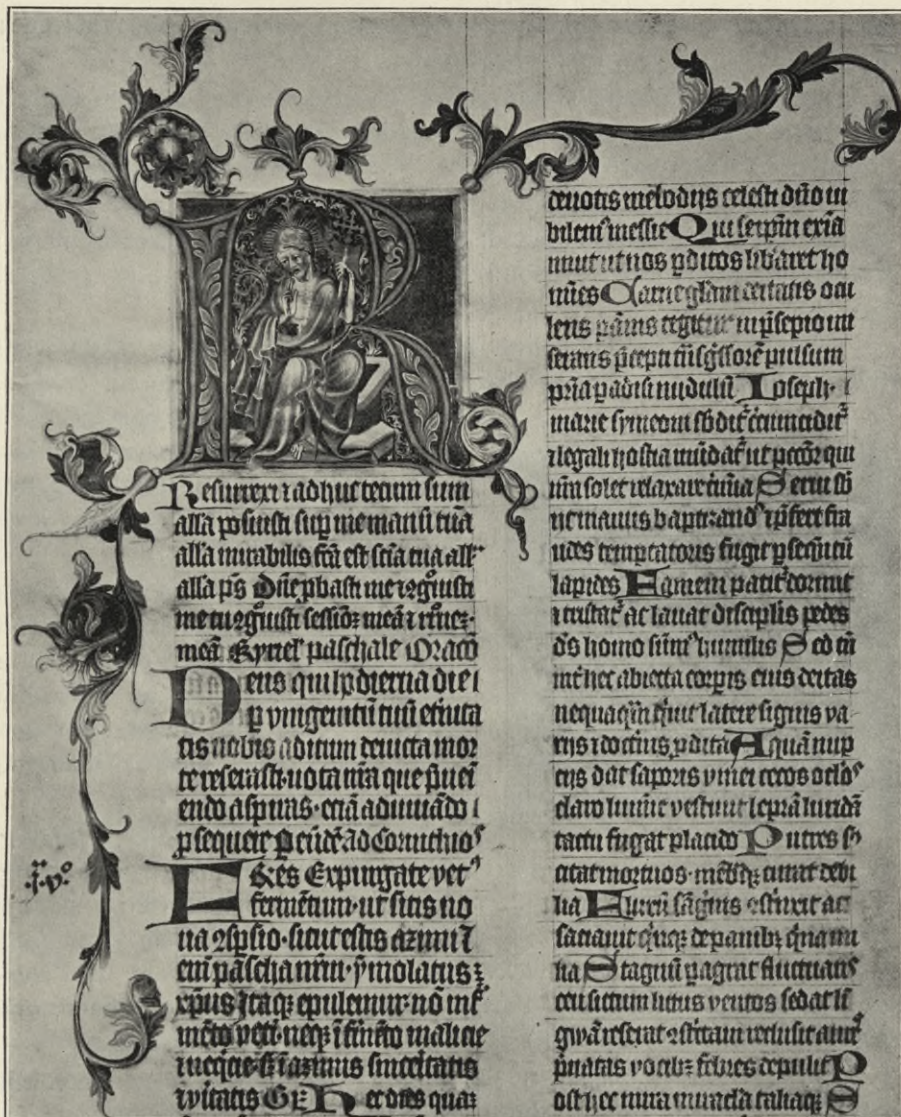 Resurrexi ⁊ adhuc tecum sum
alla posuisti sup me manū tuā
alla mirabilis fc̄a est scīa tua all'
alla ps Dn̄e pbasti me ⁊ ꝯgͦuisti
me tu ꝯgͦuisti sessiōȝ meā ⁊
meā Kyriel' paschale Oracō
Deus qui hodierna die
ꝑ vnigenitū tuū etnita
tis nobis aditum deuicta mor
te reserasti · uota nr̄a que p̄uei
endo aspiras · eciā adiuuādo
ꝓsequere ꝑ eūdē ad Corinthios
.j.ꝰ.vͦ.
FRes Expurgate vetꝰ
fermētum · ut sitis no
ua ꝯspsio · sicut estis azimi
em̄ pascha nr̄m ymolatus ē
xp̄us Itaqȝ epulemur · nō in f
mēto veti · neqȝ ī f̄mēto malicie
⁊ neqcie · sȝ ī azimis sinceritatis
⁊ vitatis Gr̄ Hec dies quaȝ
deuotis melodijs celesti dn̄o iu
bilem⁹ messie Qui seip̄m exīa
niuit ut nos ꝑditos libāret ho
mīes Carne gl̄am deitatis ocu
lens pānis tegitur in p̄sepio mi
serans p̄cepti tn̄sg̊ssorē pulsum
pr̄ia padisi nudulū Ioseph ·
marie symeoni sbdit' circūcidit'
⁊ legali hostia mūdat' ut pctōr qui
nr̄a solet relaxare cīmia Serui sb
it manus baptizand⁹ ⁊ p̄fert fra
udes temptatoris fugit psequtū
lapides Famem patit' dormit
⁊ tristat' ac lauat discip̄lis pedes
ds̄ homo sūm⁹ humilis Sed tn̄
int' hec abiecta corpis eius deitas
nequaq̄m quit latere signis va-
rijs ⁊ doctīis ꝓdita Aquā nup
cijs dat saporis vinei cecos oclos
claro lumīe vestiuit leprā luridā
tactu fugat placido Putres s⁹
citat mortuos · mēbraqȝ curat debi
lia Fluxū sāgīnis ꝯst'nxit ac
saciauit quīqȝ de panibȝ quīa mi
lia Stagnū pagrat fluctuans
ceu siccum litus ventos sedat li
gwā reserat ꝯstrictam reclusit aures
p'uatas vocibȝ febres depulit P
ost hec mira miracla taliaqȝ S